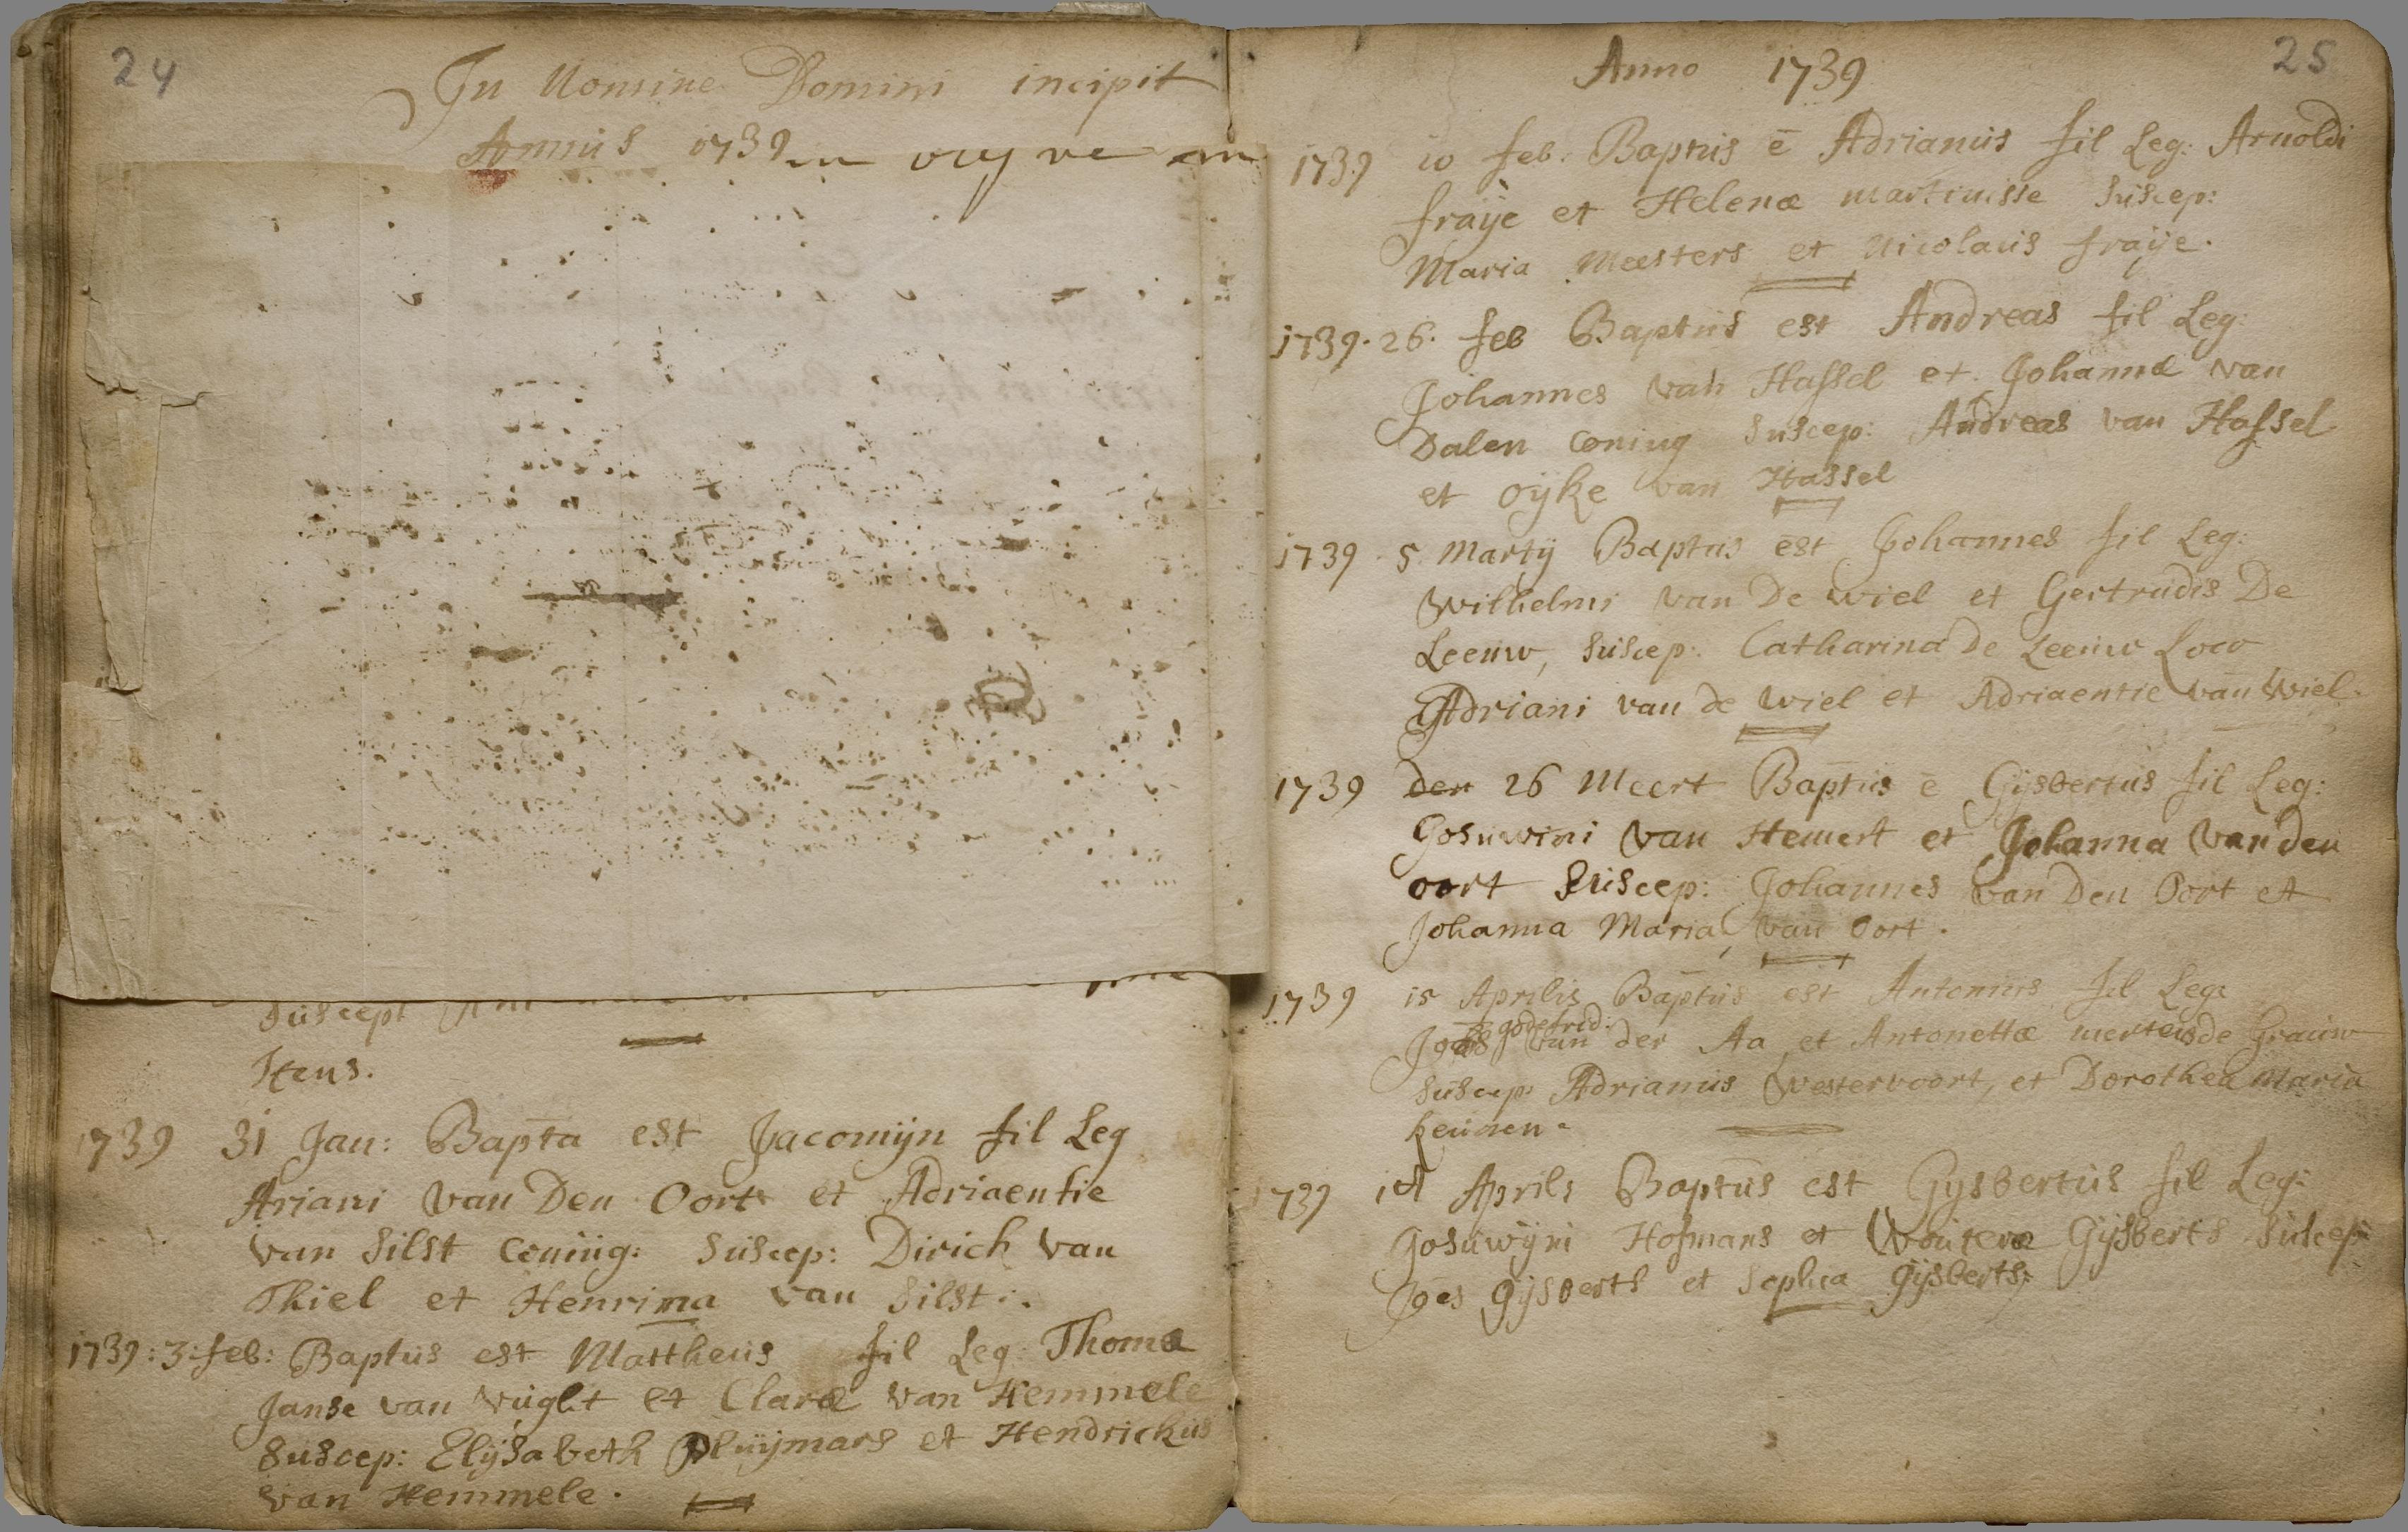 24
In Nomine Domini incipit
Annus 1739
Suscept
Hens.
1739 31 Jan: Bapta est Jacomijn fil Leg
Ariani van Den Oort et Adriaentie
van Silst Coniug: Suscep: Dirich van
Thiel et Henrina van Silst.
1739:3:feb: Baptus est Mattheus fil Leg: Thoma
Janse van vught et Claræ van Hemmele
Suscep: Elijsabeth Pluijmars et Hendrickus
van Hemmele.
25
Anno 1739
1739 10 feb: Baptus ē Adrianus fil Leg: Arnoldi
fraije et Helenæ martinisse Suscep:
Maria Meesters et Nicolaus fraije.
1739. 26. feb Baptus est Andreas fil Leg:
Johannes van Hassel et Johannæ van
Dalen Coniug Suscep: Andreas van Hassel
et oijke van Hassel
1739 5 Martij Baptus est Johannes fil Leg:
Wilhelmi van De Wiel et Gertrudis De
Leeuw, Suscep: Catharina De Leeuw Loco
Adriani van de Wiel et Adriaentie van Wiel.
1739 den 26 Meert Baptus ē Gijsbertus fil Leg:
Gosuwini van Hemert et Johanna van den
oort Suscep: Johannes van Den Oort et
Johanna Maria van Oort.
1739 15 Aprilis Baptus est Antonius fil Leg:
godefrid:
Joēs van der Aa et Antonettæ mertens de Grauw
Suscep: Adrianus Westervoort, et Dorothea Maria
keunen.
1739 Aprils Baptus est Gysbertus fil Leg:
Gosuwijni Hofmans et Wouteræ Gijsberts Suscep:
Joēs Gijsberts et Sophia Gijsberts